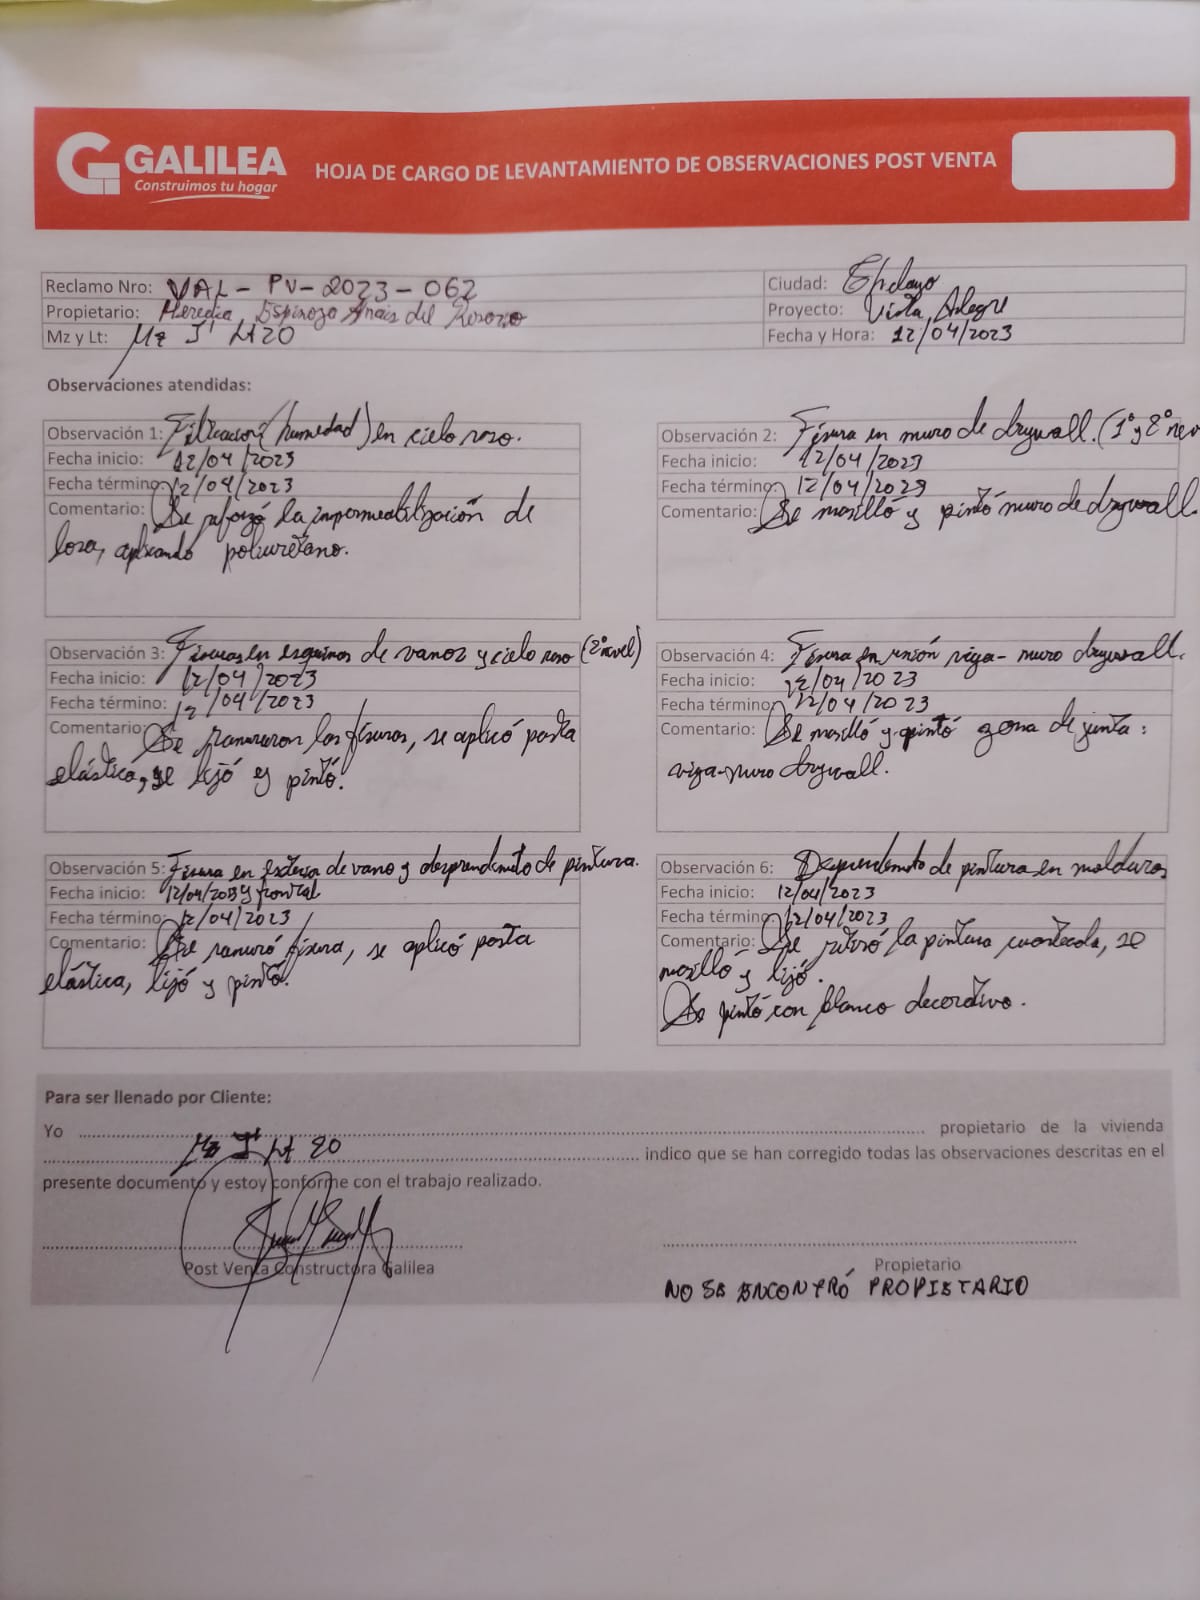 GALILEA
Construimos tu hogar
HOJA DE CARGO DE LEVANTAMIENTO DE OBSERVACIONES POST VENTA
Reclamo Nro: VAL - PV - 2023 - 062
Ciudad: Chiclayo
Propietario: Heredia Espinoza Anais del Rosario
Proyecto: Vista Alegre
Mz y Lt: Mz J' Lt 20
Fecha y Hora: 12/04/2023
Observaciones atendidas:
Observación 1: Filtración (humedad) en cielo raso.
Fecha inicio: 12/04/2023
Fecha término: 12/04/2023
Comentario: Se reforzó la impermeabilización de
losa, aplicando poliuretano.
Observación 2: Fisura en muro de drywall. (1° y 2° niv
Fecha inicio: 12/04/2023
Fecha término: 12/04/2023
Comentario: Se masilló y pintó muro de drywall.
Observación 3: Fisuras en esquinas de vanos y cielo raso (2° nivel)
Fecha inicio: 12/04/2023
Fecha término: 12/04/2023
Comentario: Se ranuraron las fisuras, se aplicó pasta
elástica, se lijó y pintó.
Observación 4: Fisura en unión viga - muro drywall.
Fecha inicio: 12/04/2023
Fecha término: 12/04/2023
Comentario: Se masilló y pintó zona de junta:
viga-muro drywall.
Observación 5: Fisura en exterior de vano y desprendimiento de pintura.
Fecha inicio: 12/04/2023 y frontal
Fecha término: 12/04/2023
Comentario: Se ranuró fisura, se aplicó pasta
elástica, lijó y pintó.
Observación 6: Desprendimiento de pintura en molduras
Fecha inicio: 12/04/2023
Fecha término: 12/04/2023
Comentario: Se retiró la pintura cuarteada, se
masilló y lijó.
Se pintó con blanco decorativo.
Para ser llenado por Cliente:
Yo propietario de la vivienda
Mz J' Lt 20 indico que se han corregido todas las observaciones descritas en el
presente documento y estoy conforme con el trabajo realizado.
Post Venta Constructora Galilea
Propietario
NO SE ENCONTRÓ PROPIETARIO